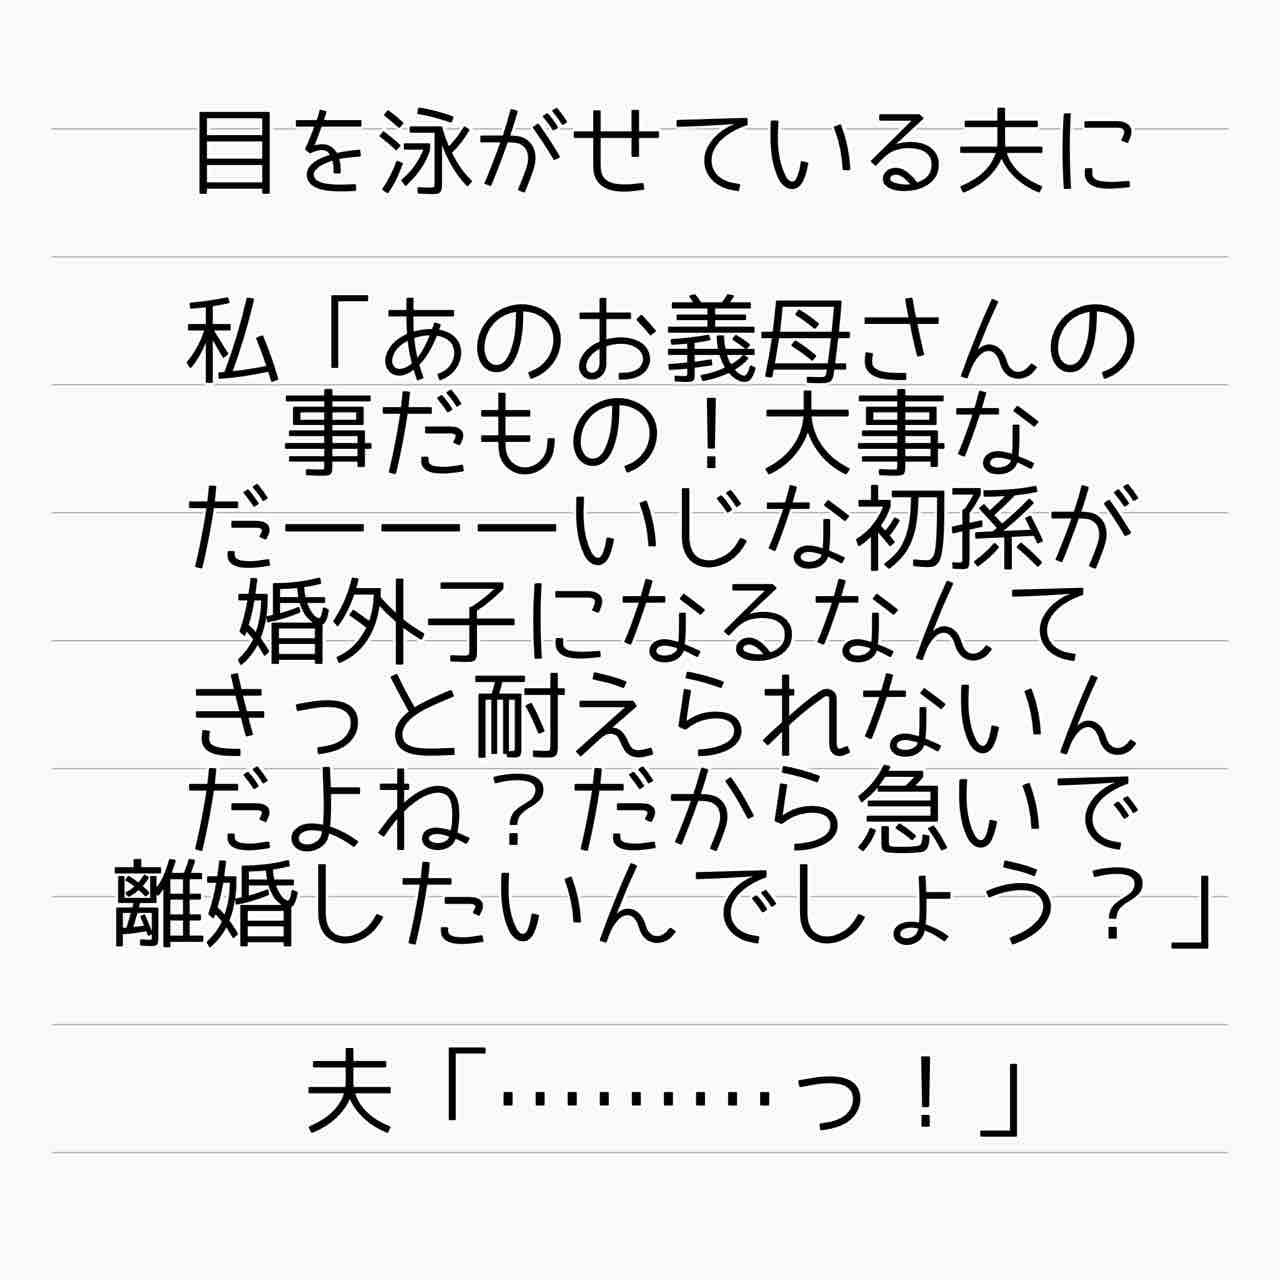 目を泳がせている夫に
私「あのお義母さんの
事だもの！大事な
だーーーいじな初孫が
婚外子になるなんて
きっと耐えられないん
だよね？だから急いで
離婚したいんでしょう？」
夫「………っ！」